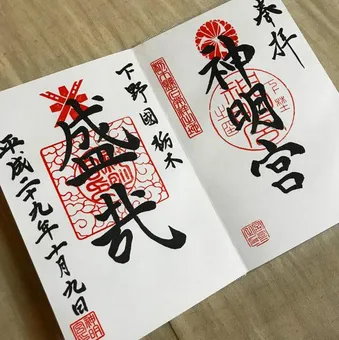 奉拝
神明宮
下野國栃木
盛哉
平成二十九年十月九日